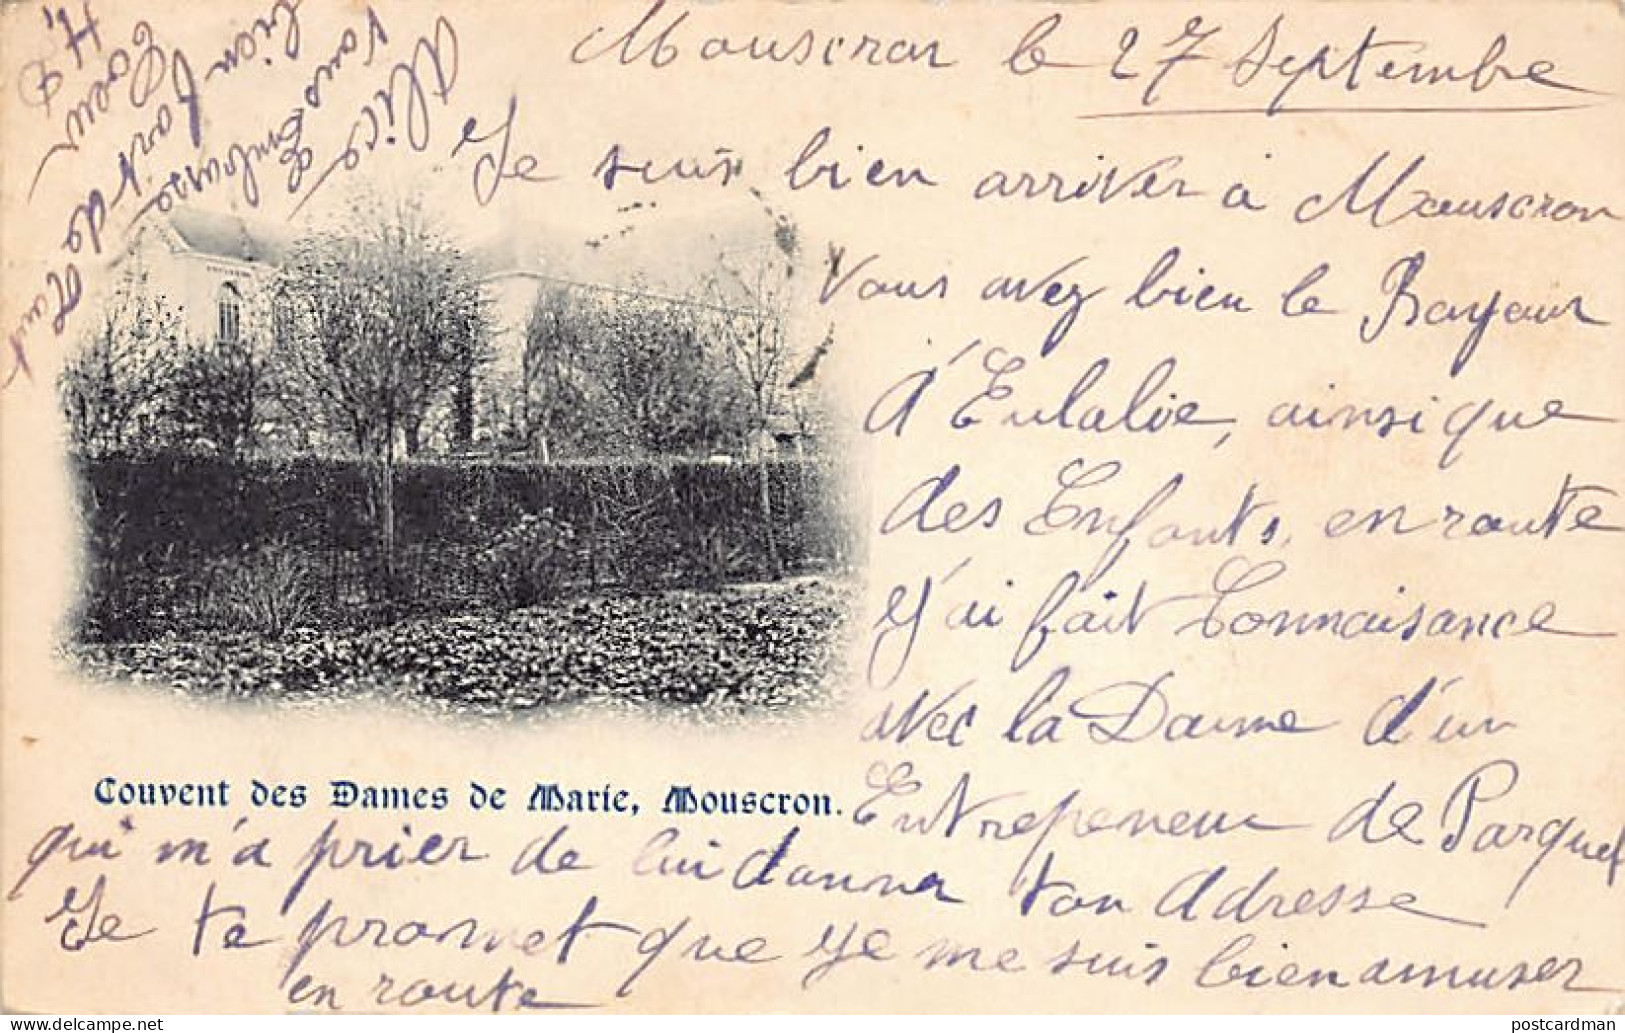 Mouscron le 27 Septembre
Je suis bien arriver à Mouscron
Vous avez bien le Bonjour
d'Eulalie, ainsi que
des Enfants, en route
J'ai fait Connaisance
avec la Dame d'un
Entrepeneur de Parquet
qui m'a prier de lui donner ton Adresse
Je te promet que Je me suis bien amuser
en route
Alice
Vous Embrasse
bien fort de tout
Coeur
Couvent des Dames de Marie, Mouscron.
postcardman